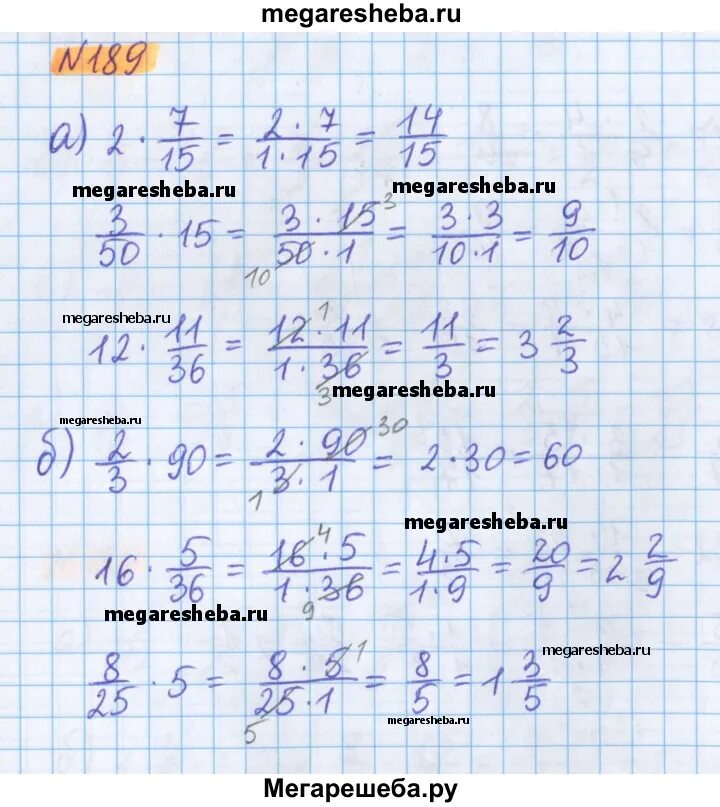 megaresheba.ru
N189
а) 2 · 7/15 = 2 · 7/1 · 15 = 14/15
megaresheba.ru megaresheba.ru
3/50 · 15 = 3 · 15 3/50 · 1 10 = 3 · 3/10 · 1 = 9/10
megaresheba.ru
12 · 11/36 = 12 1 · 11/1 · 36 3 = 11/3 = 3 2/3
megaresheba.ru
megaresheba.ru
б) 2/3 · 90 = 2 · 90 30/3 1 · 1 = 2 · 30 = 60
megaresheba.ru
16 · 5/36 = 16 4 · 5/1 · 36 9 = 4 · 5/1 · 9 = 20/9 = 2 2/9
megaresheba.ru
megaresheba.ru
8/25 · 5 = 8 · 5 1/25 5 · 1 = 8/5 = 1 3/5
megaresheba.ru
Мегарешеба.ру